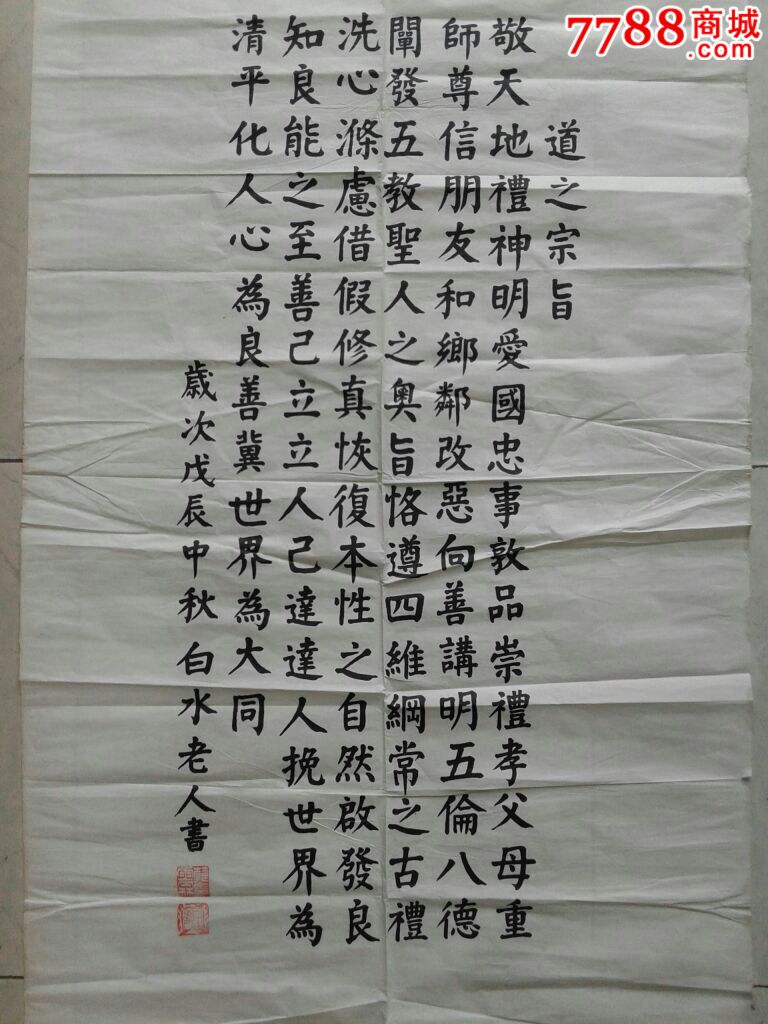 7788商城
.com
道之宗旨
敬天地禮神明愛國忠事敦品崇禮孝父母重
師尊信朋友和鄉鄰改惡向善講明五倫八德
闡發五教聖人之奧旨恪遵四維綱常之古禮
洗心滌慮借假修真恢復本性之自然啟發良
知良能之至善己立立人己達達人挽世界為
清平化人心為良善冀世界為大同
歲次戊辰中秋白水老人書